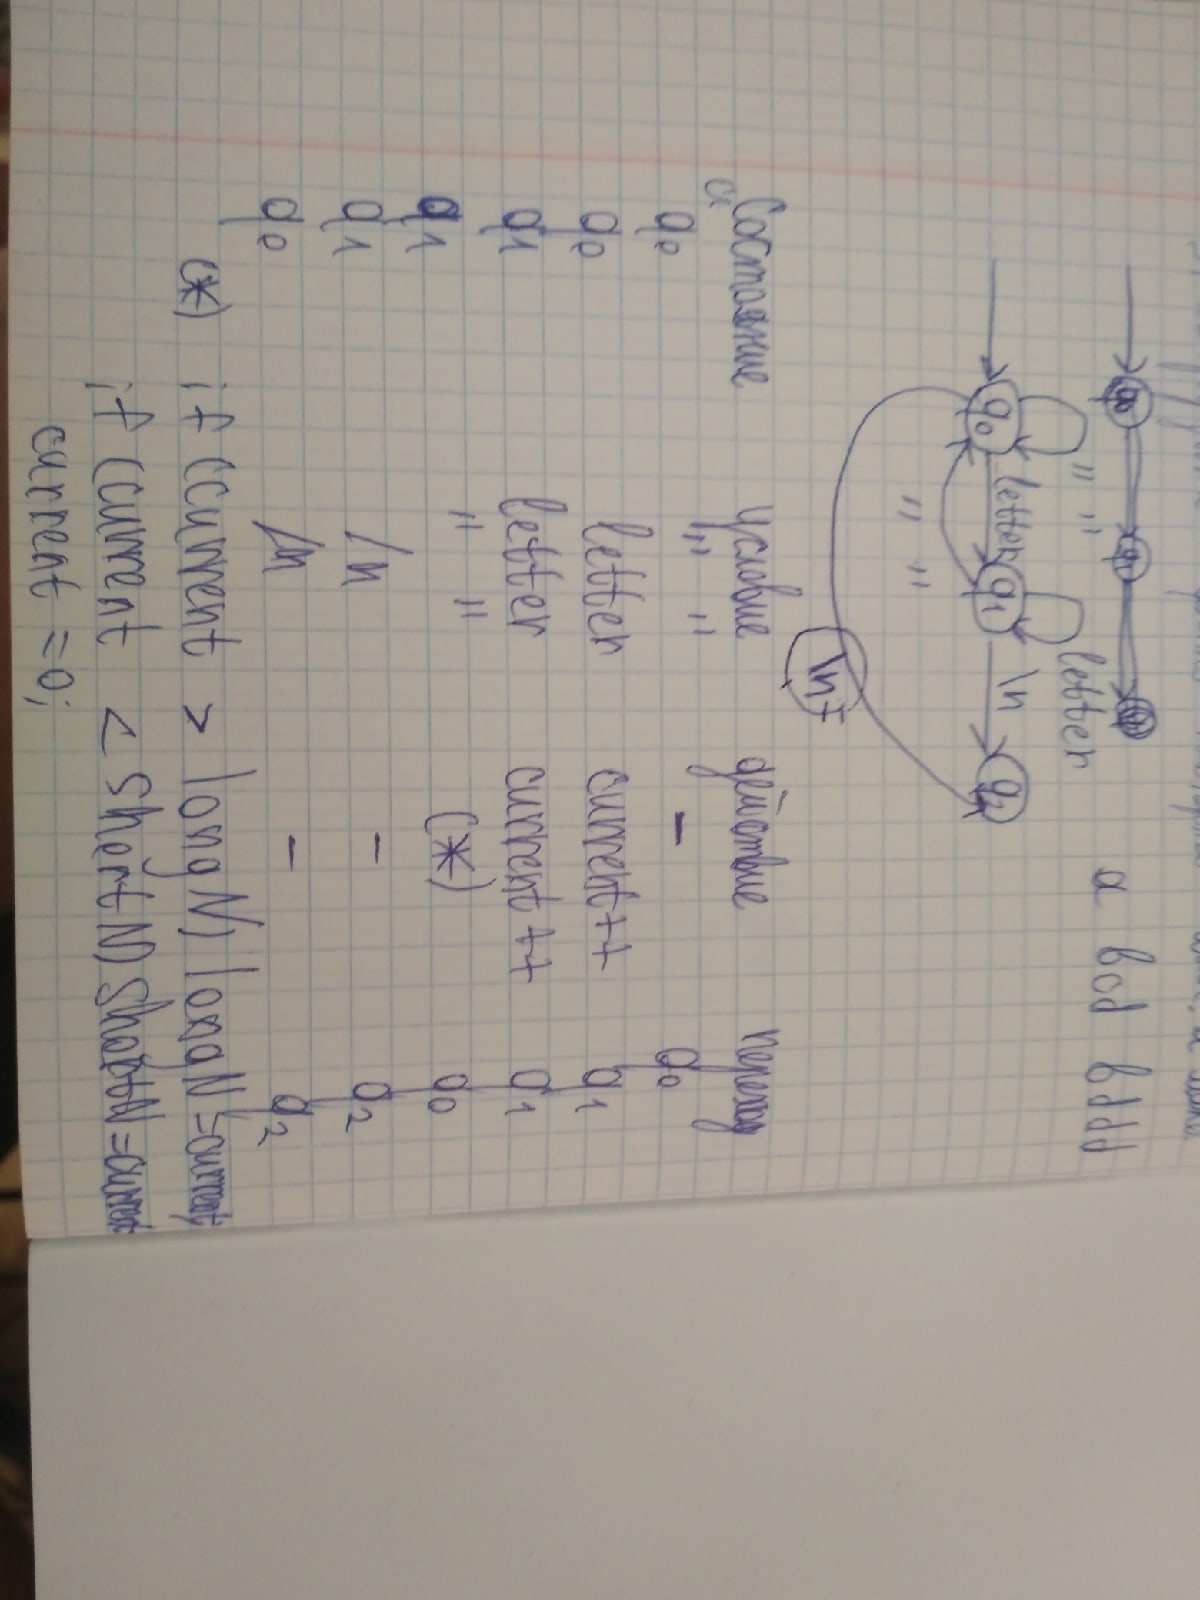 a bod bddd
" " letter
q0 letter q1 \n q2
" "
\n
Состояние условие действие переход
q0 " " - q0
q0 letter current++ q1
q1 letter current++ q1
q1 " " (*) q0
q1 /n - q2
q0 /n - q2
(*) if (current > longN) longN=current;
if (current < shortN) shortN=current
current = 0;